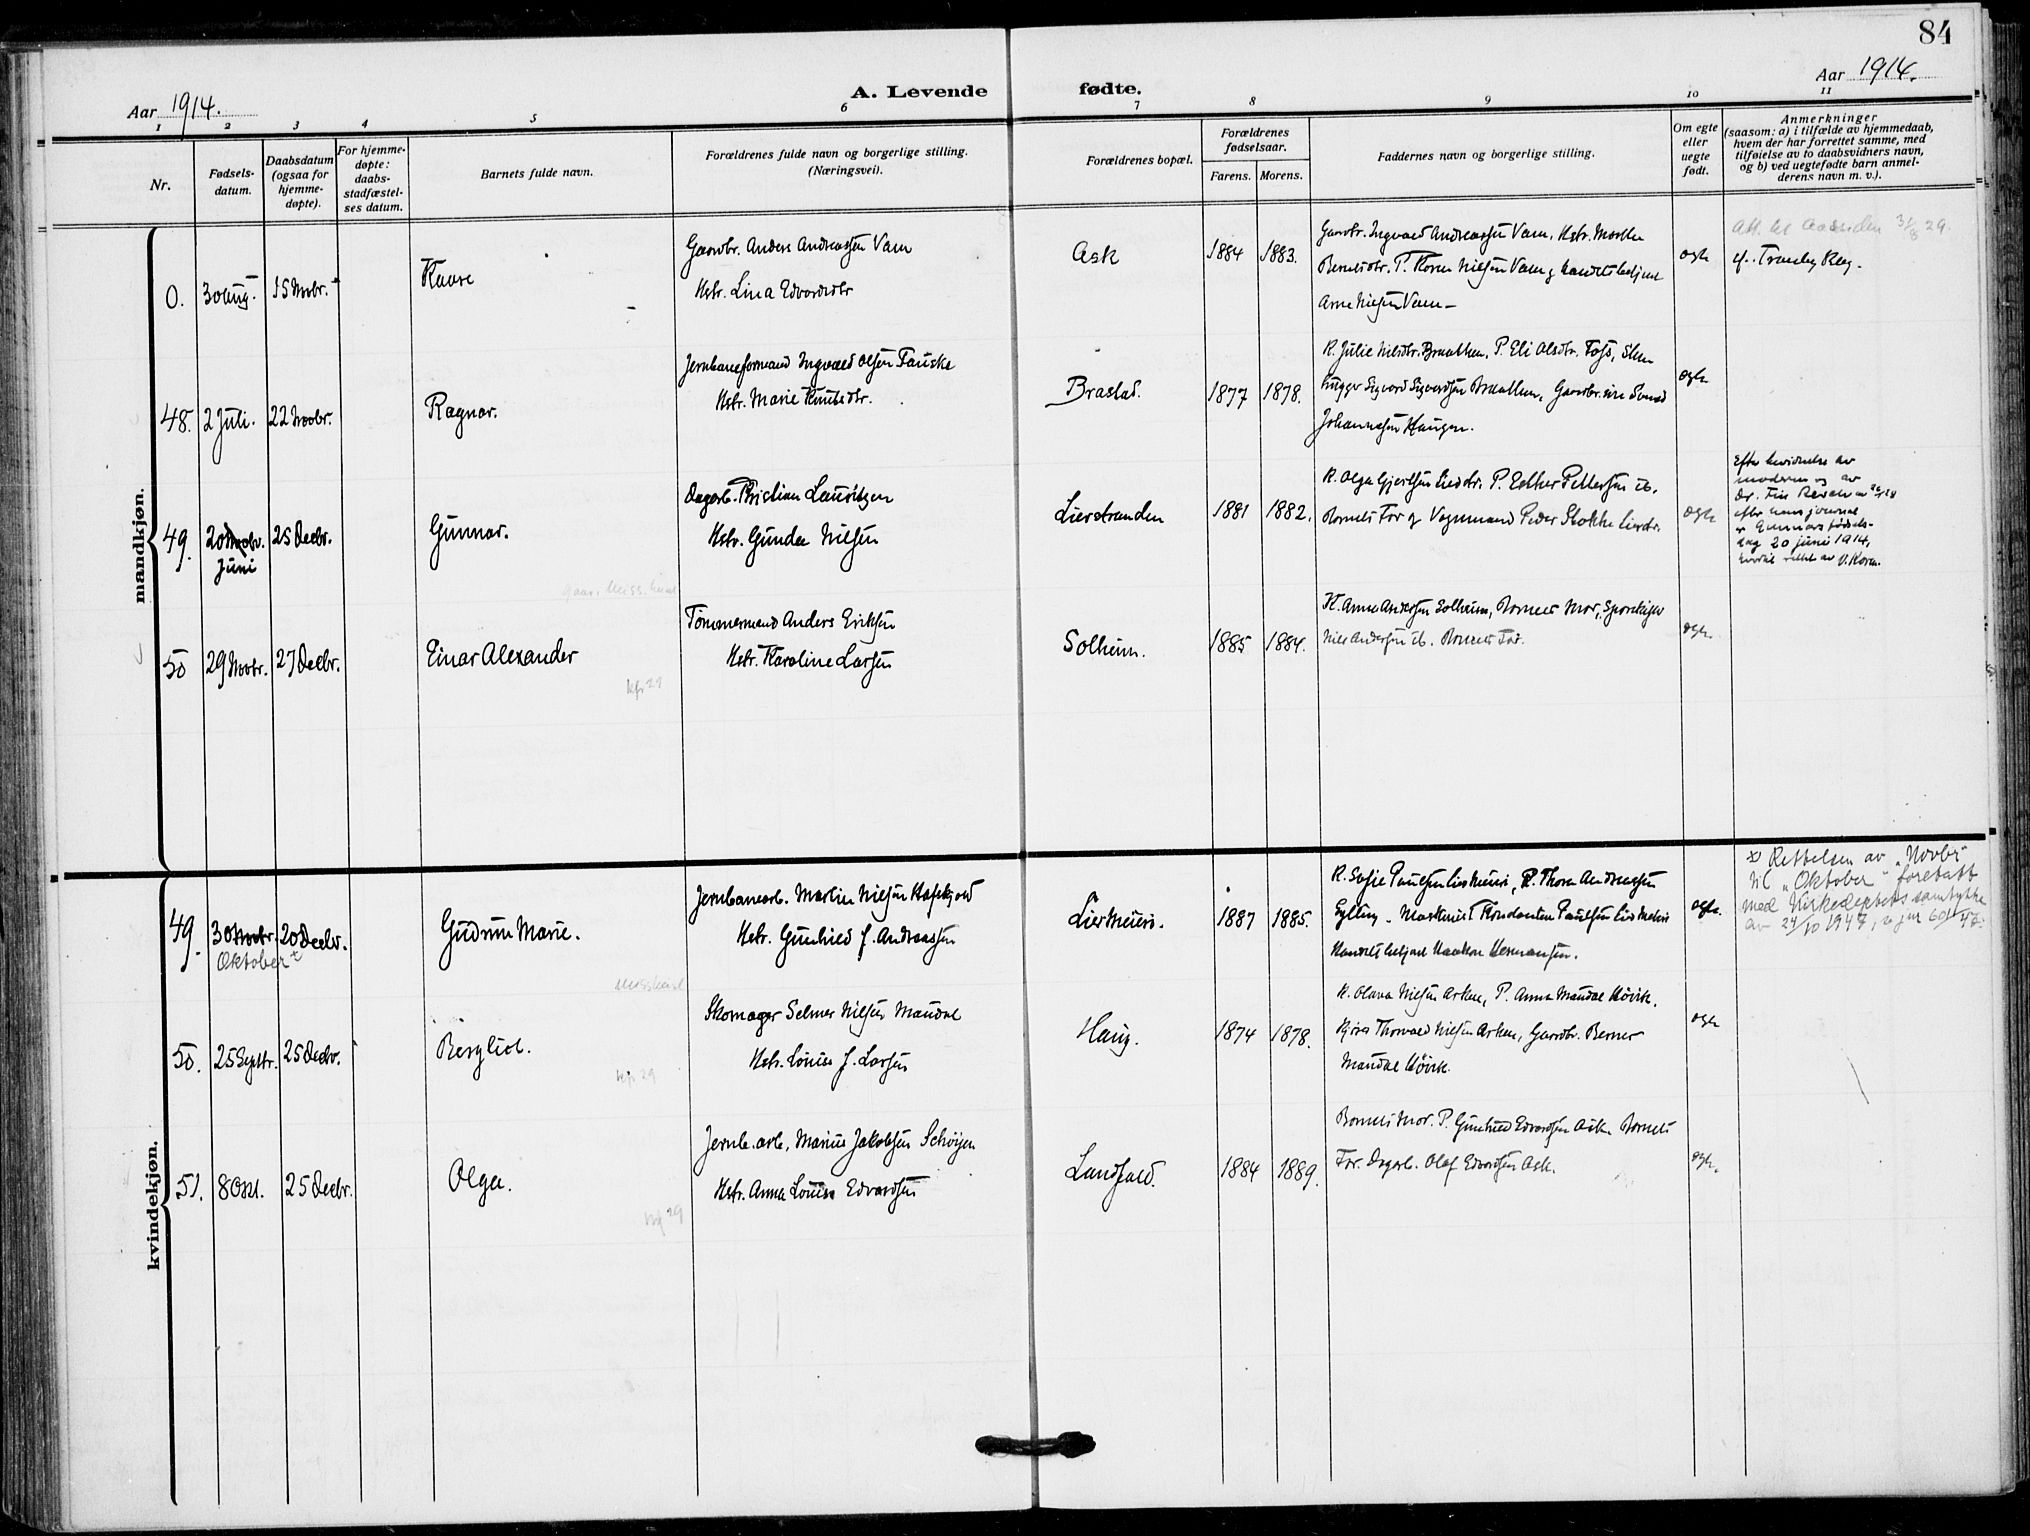 84
Aar 1914.
A. Levende fødte.
Aar 1914.
1 2 3 4 5 6 7 8 9 10 11
Nr.
Fødsels-
datum.
Daabsdatum
(ogsaa for
hjemme-
døpte).
For hjemme-
døpte:
daabs-
stadfæstel-
ses datum.
Barnets fulde navn.
Forældrenes fulde navn og borgerlige stilling.
(Næringsvei).
Forældrenes bopæl.
Forældrenes
fødselsaar.
Farens. Morens.
Faddernes navn og borgerlige stilling.
Om egte
eller
uegte
født.
Anmerkninger
(saasom: a) i tilfælde av hjemmedaab,
hvem der har forrettet samme, med
tilføielse av to daabsvidners navn,
og b) ved uegtefødte barn anmel-
derens navn m. v.).
mandkjøn.
0. 30 Aug. 15 Novbr.
Kaare
Gaardbr. Anders Andreassen Vam
Hstr. Lina Edvardsdtr
Ask
1884 1883.
Gaardbr. Ingvald Andreassen Vam, Hstr. Marthe
Arne Nielsen Vam
egte
cf. Tranby Reg.
48. 2 Juli. 22 Novbr.
Ragnar.
Jernbaneformand Ingvald Olsen Fauske
Hstr. Marie Knutsdtr.
Brastad.
1877 1878.
K. Julie Nilsdtr. Braathen, P. Eli Olsdtr. Foss, Sten
hugger Sigvard Sigvardsen Braathen, Gaardbr.
Johannesen Haugen.
egte
49. 20 Novbr. 25 Decbr.
Juni
Gunnar.
Dagarb. Kristian Lauritzen
Hstr. Gunda Nilsen
Lierstranden
1881 1882.
K. Olga Gjertsen Lierstr. P. Esther Pettersen ib.
Barnets Far og Vognmand Peder Stokke Lierstr.
egte
Efter bevidnelse av
moderen og av
efter hans journal
er Gunnars fødsels-
dag 20 juni 1914,
rettet av V. Koren.
50 29 Novbr. 27 Decbr.
Einar Alexander
Tømmermand Anders Eriksen
Hstr. Karoline Larsen
Solheim.
1885 1884.
K. Anna Andersen Solheim, Barnets Mor,
Nils Andersen ib. Barnets Far.
egte
kfr 29
kvindekjøn.
49. 30 Novbr. 20 Decbr.
Oktober x
Gudrun Marie.
Jernbanearb. Martin Nilsen Hafskjold
Hstr. Gunhild f. Andreassen
Liermeieri.
1887 1885.
K. Sofie Paulsen Liermeieri, P. Thora Andreassen
Gylling. Maskinist Paulsen Liermeieri
Handelsbetjent Haakon Hermansen.
egte.
x) Rettelsen av "Novbr"
til "Oktober" foretatt
med Kirkedeptets samtykke
av 24/10 1947,
50. 25 Septbr. 25 Decbr.
Bergliot.
Skomager Selmer Nilsen Maudal
Hstr. Louise f. Larsen
Haug.
1874 1878.
K. Olava Nilsen Asken, P. Anna Maudal Høvik.
Thorvald Nilsen Asken, Gaardbr. Berner
Maudal Høvik.
egte
kfr. 29
51. 8 Okt. 25 Decbr.
Olga.
Jernb.arb. Marius Jakobsen Schøyen
Hstr. Anna Louise Edvardsen
Landfald.
1884 1889.
Barnets Mor. P. Gunhild Edvardsen Ask. Barnets
Far. Dagarb. Olaf Edvardsen Ask.
egte.
29